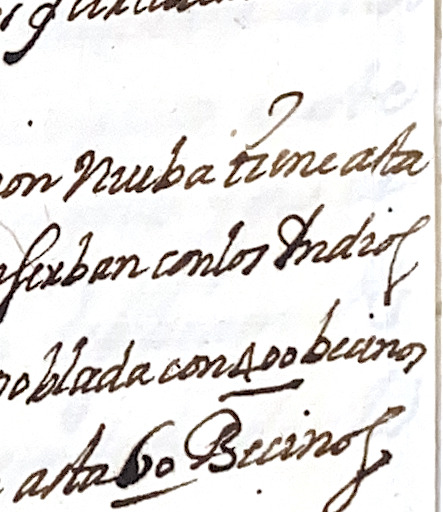 on Nueba tiene asta
serban con los Indios
poblada con 400 becinos
asta 60 Becinos